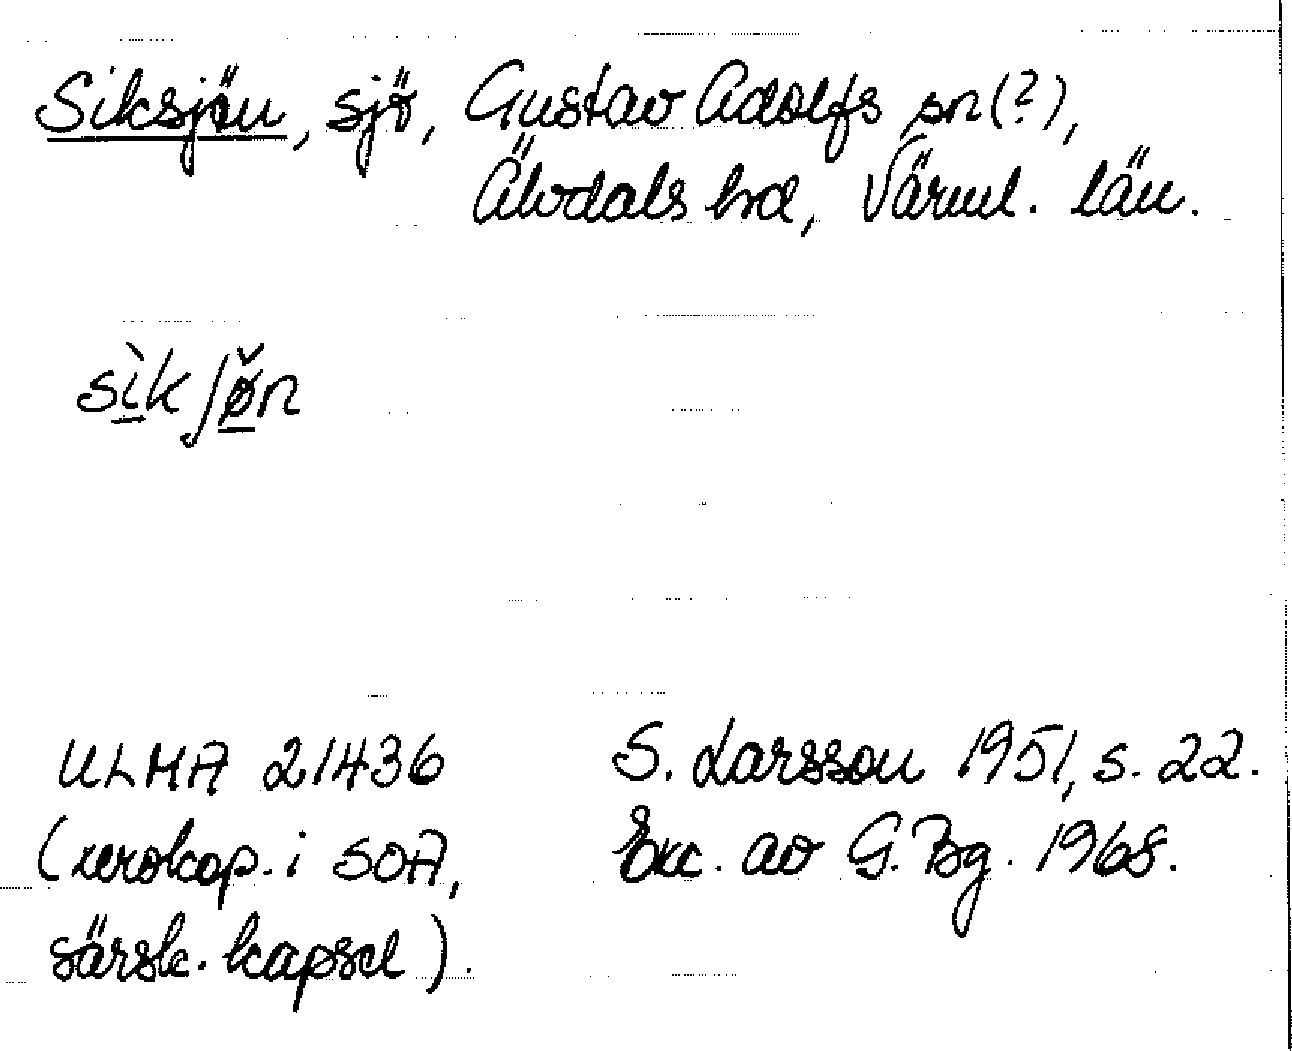 Siksjön, sjö, Gustav Adolfs sn (?),
Älvdals hd, Värml. län.
sìkʃø̌n
ULMA 21436
(xerokop. i SOA,
särsk. kapsel).
S. Larsson 1951, s. 22.
Exc. av G. Bg. 1968.